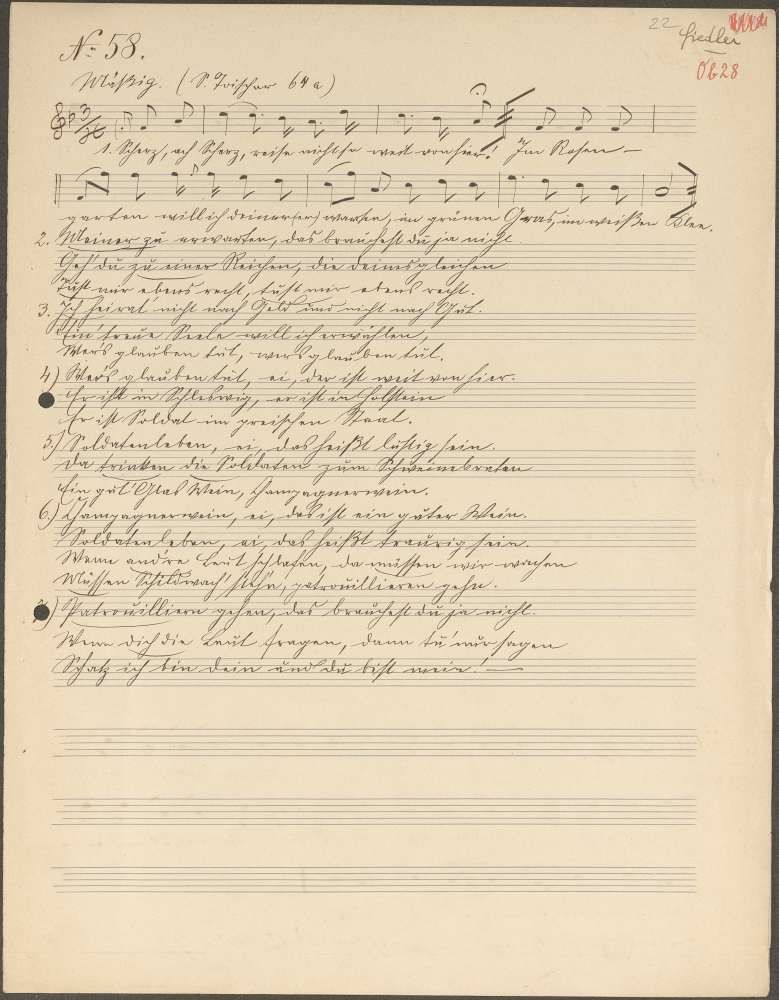 22 Fiedler
Ob 28
No 58.
Mäßig. (S. Toischer 64 a)
1. Scherz, ach Scherz, reise nicht so weit von hier! Im Rosen-
garten will ich deiner (er) warten, im grünen Gras, im weißen Klee.
2. Meiner zu erwarten, das brauchest du ja nicht.
Geh' du zu einer Reichen, die deinesgleichen
Tust mir ebens recht, tust mir ebens recht.
3. Ich heirat' nicht nach Geld und nicht nach Gut.
Ein' treue Seele will ich erwählen,
Wer's glauben tut, wer's glauben tut.
4) Wer's glauben tut, ei, der ist weit von hier.
Er ist in Schleswig, er ist in Holstein
Er ist Soldat im preischen Staat.
5.) Soldatenleben, ei, das heißt lustig sein.
Da trinken die Soldaten zum Schweinebraten
Ein gut' Glas Wein, Champagnerwein.
6.) Champagnerwein, ei, das ist ein guter Wein.
Soldatenleben, ei, das heißt traurig sein.
Wenn and're Leut schlafen, da müssen wir wachen
Müssen Schildwach' stehn, patrouillieren gehn.
7) Patrouilliern gehen, das brauchest du ja nicht.
Wenn dich die Leut fragen, dann tu' nur sagen
Schatz ich bin dein und du bist mein! —